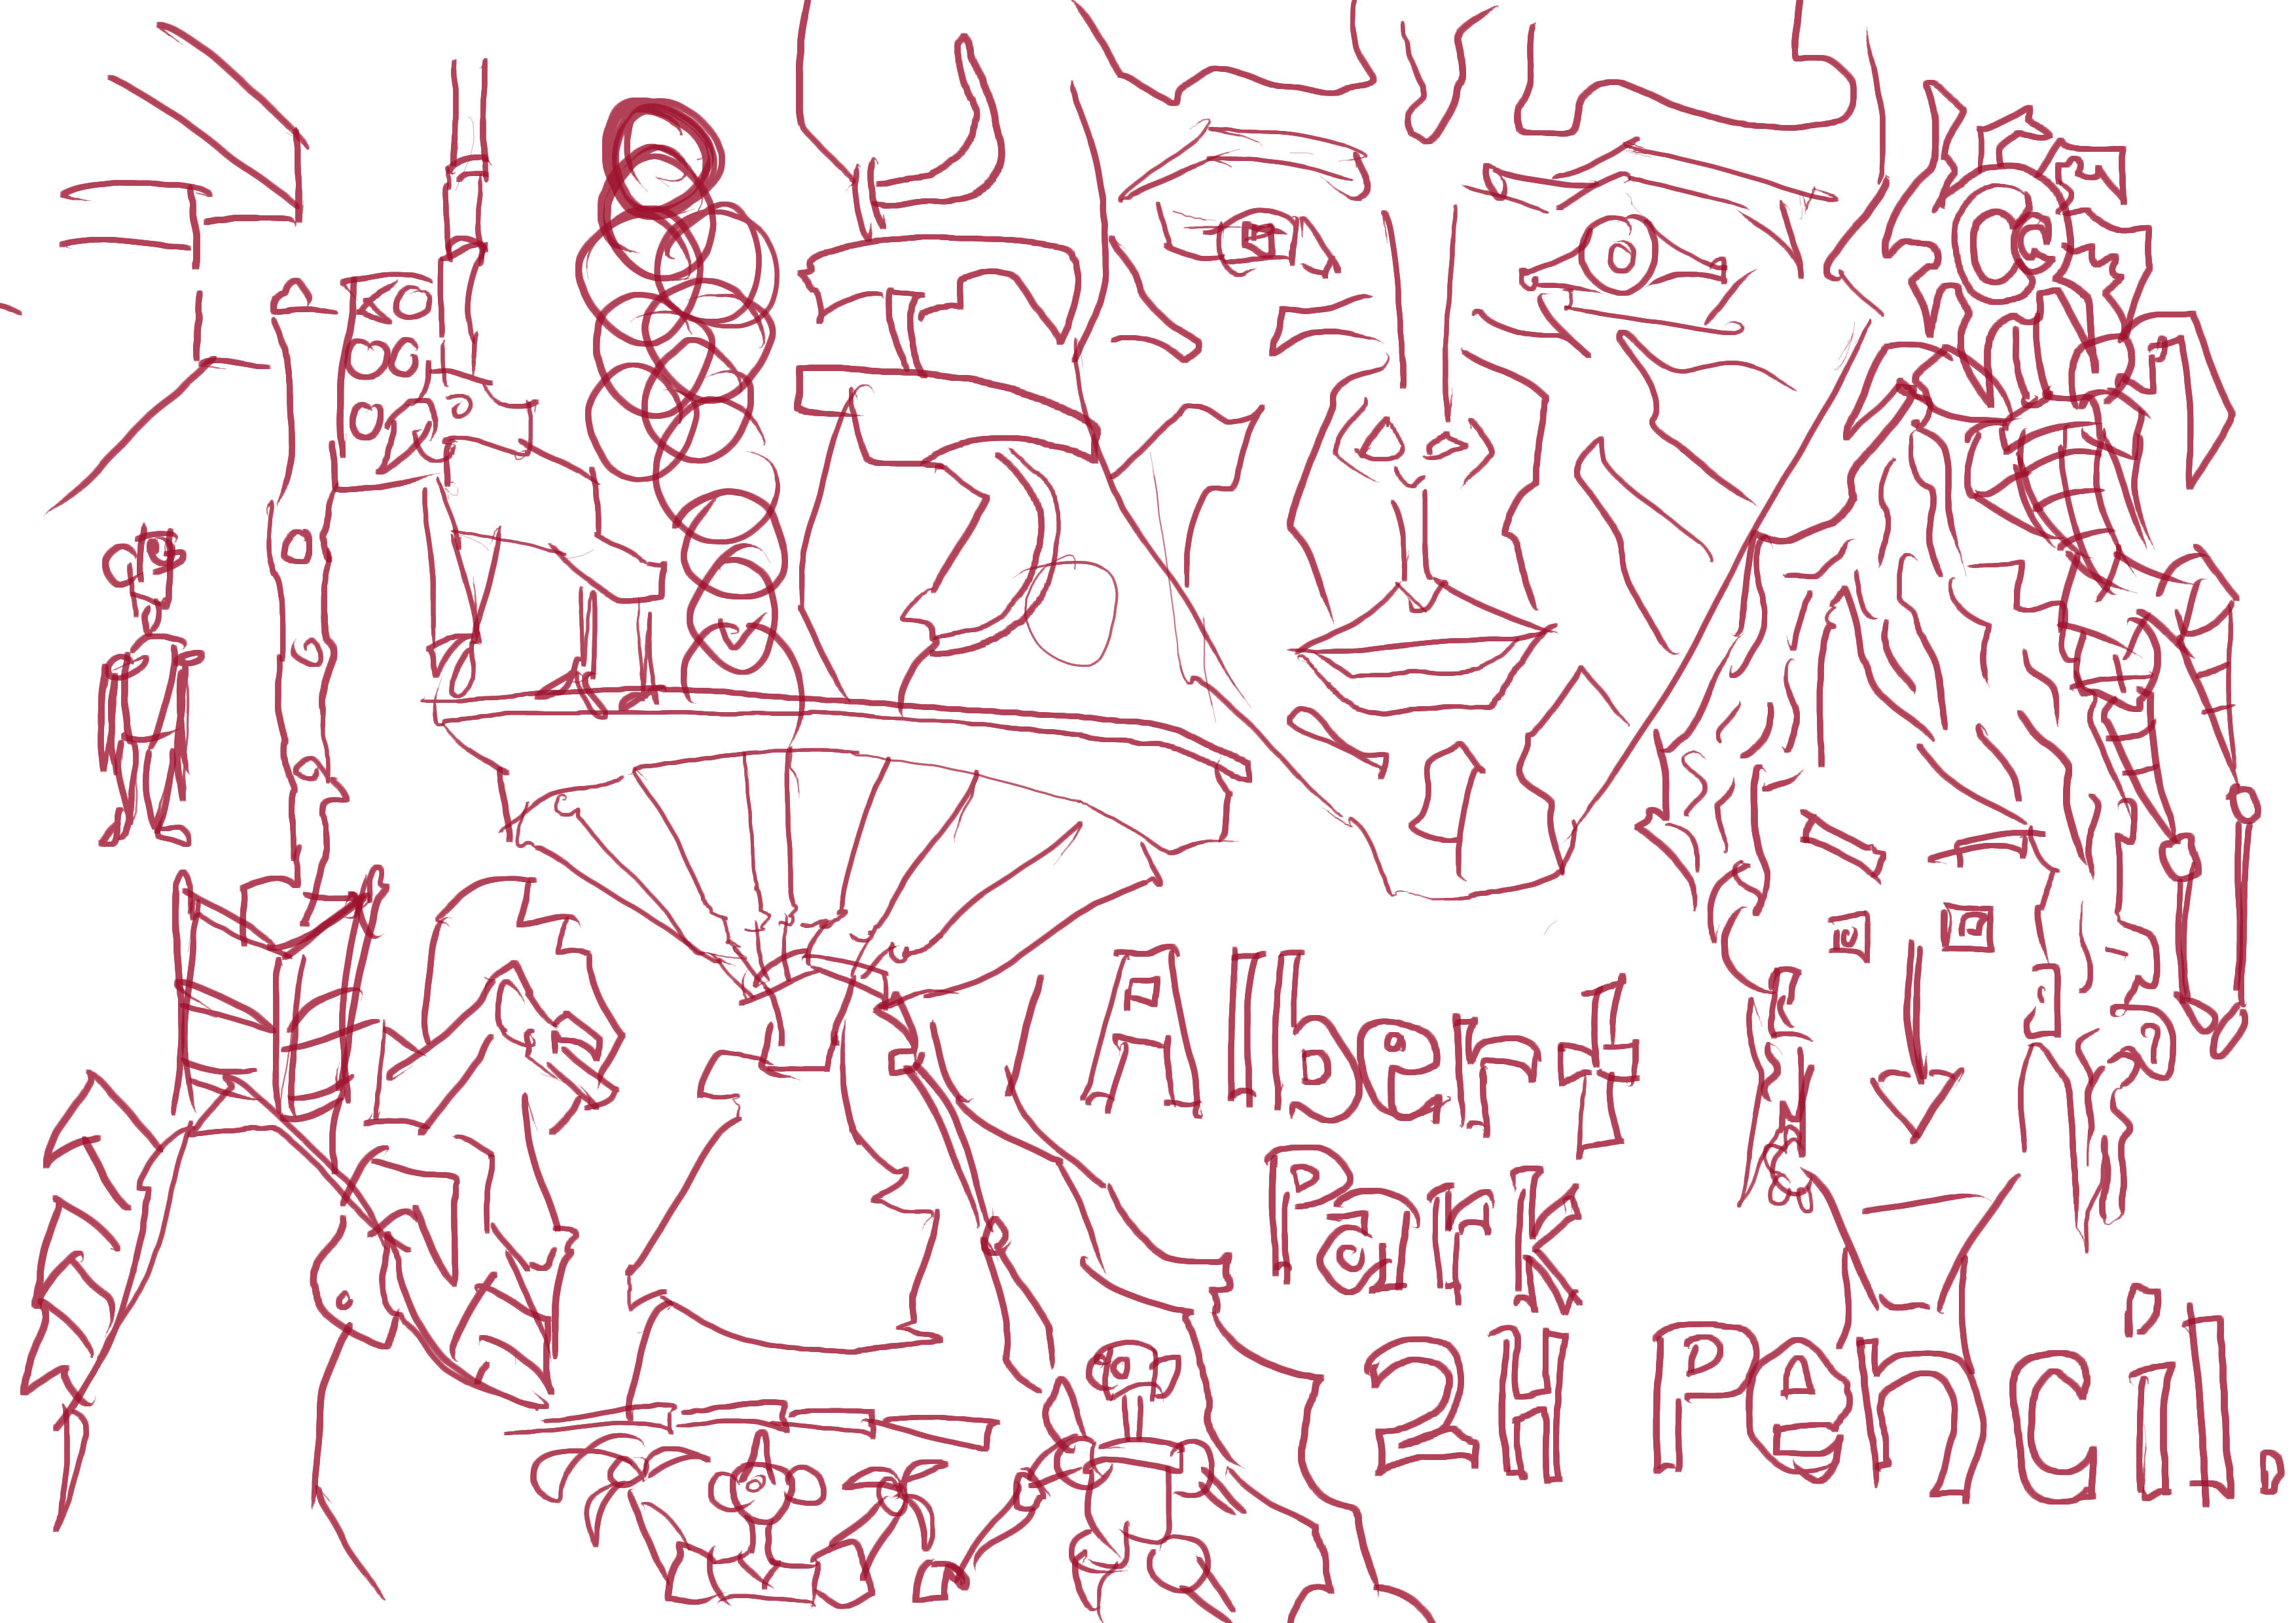 Albert
Park
2H Pencil.